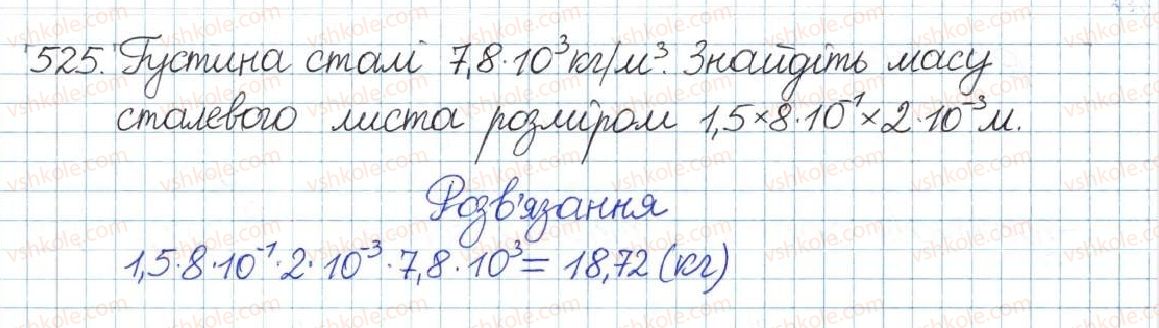 525. Густина сталі 7,8·10³кг/м³. Знайдіть масу
сталевого листа розміром 1,5×8·10⁻¹×2·10⁻³м.
Розв'язання
1,5·8·10⁻¹·2·10⁻³·7,8·10³= 18,72 (кг)